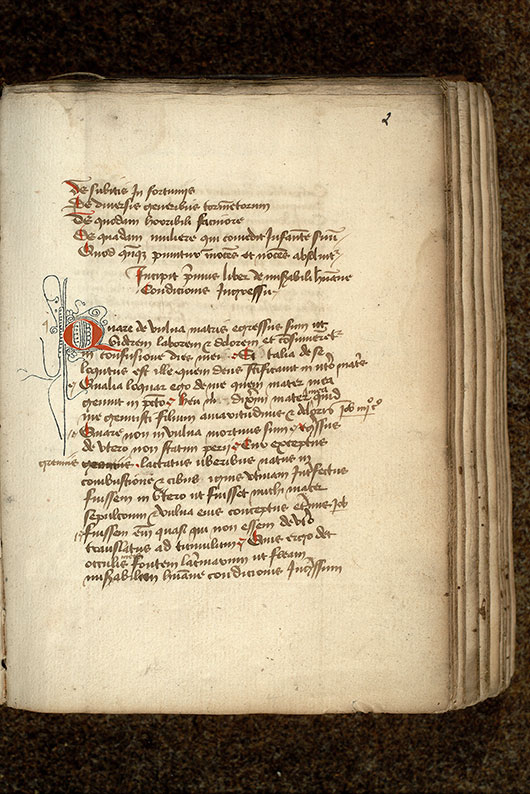 2
De subitis In fortunis
De diversis generibus tormetorum
De quodam horribili facinore
De quadam muliere qui comedit Infante suu
Quod qnqz puniuntur inoces et noces absoluit
Incipit prim9 liber de miserabili humane
Condicionis Ingressu
Quare de vulva matris egressus sum ut
viderem laborem et dolorem et cosumeret
in confusione dies mei Si talia de se
loqutus est ille quem deus sctificavit in utero matris
Qualia loquar ego de me quem mater mea
genuit in pctis heu me dixerim mater mea quid
me genuisti filium amaritudinis et doloris
Quare non in vulva mortuus sum egressus
de utero non statim perii Cur exceptus
gremiis lactatus uberibus natus in
combustione et cibus ignis utinam interfectus
fuissem in utero ut fuisset michi mater
sepulcrum et vulva eius conceptus eternus Job
Fuissem eni quasi qui non essem de utero
translatus ad tumulum Quis ergo det
occulis meis fontem lacrimarum ut fleam
miserabilem humane condicionis Ingressum